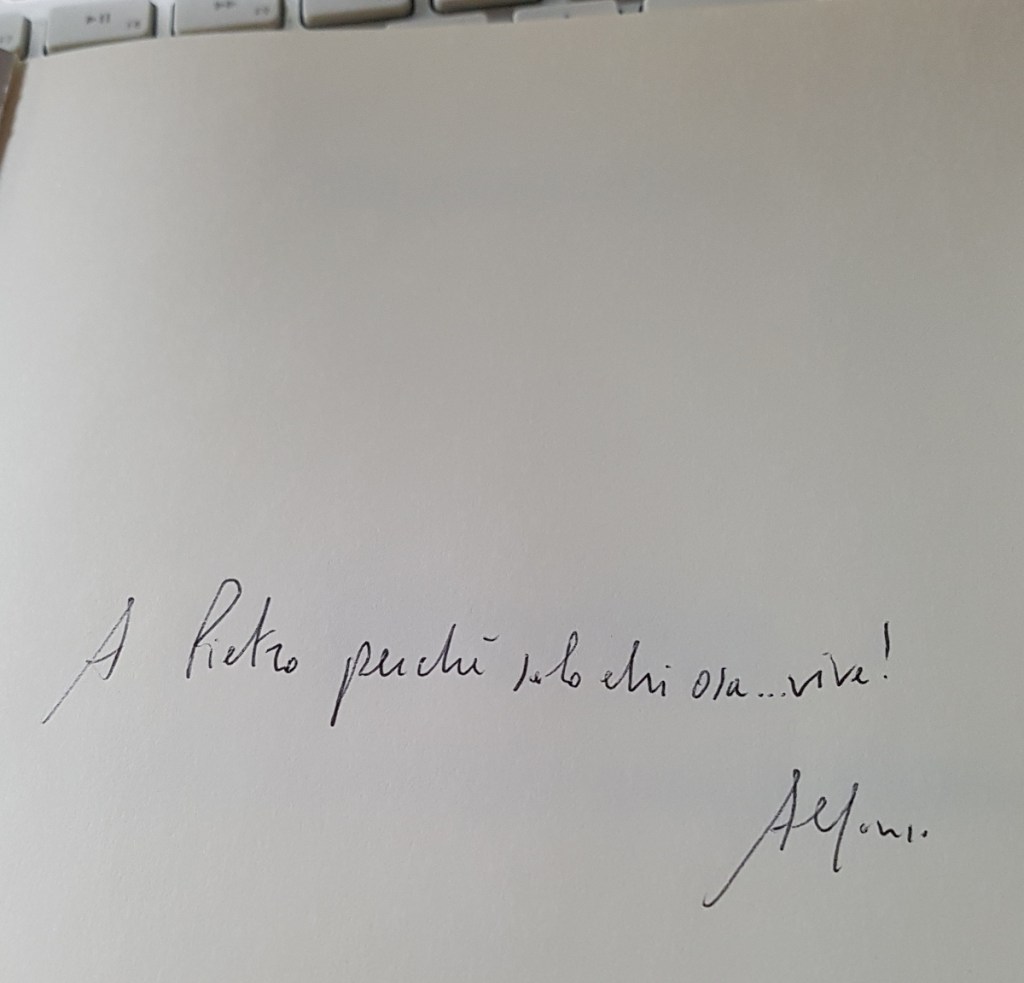 A Pietro perchè solo chi osa...vive!
Alfonso